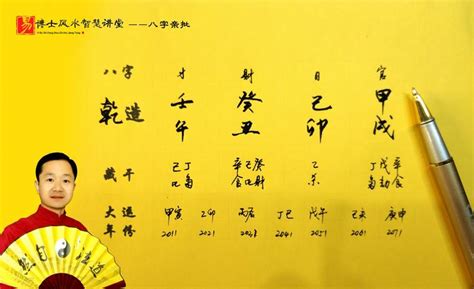 博士风水智慧讲堂 ——八字亲批
八字 才 財 日 官
乾造 壬 癸 己 甲
午 丑 卯 戌
藏干 己丁 辛己癸 乙 丁戊辛
比 食比财 杀 劫食
大运 甲寅 乙卯 丙辰 丁巳 戊午 己未 庚申
年份 2011 2021 2041 2051 2061 2071